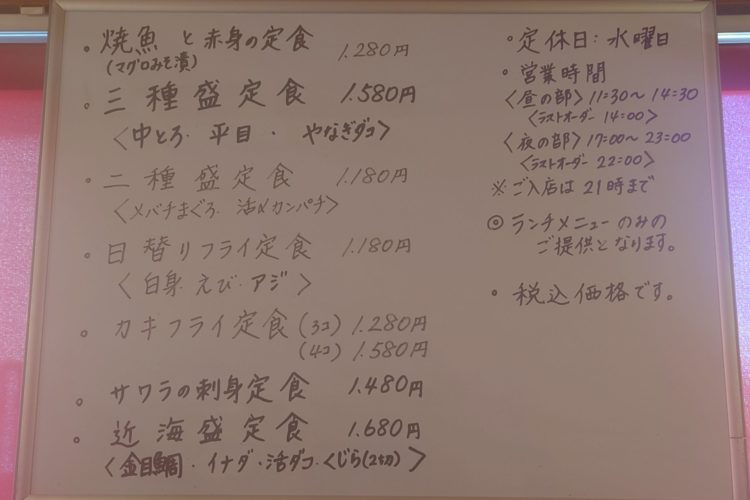 ・焼魚と赤身の定食 1.280円
(マグロみそ漬)
・三種盛定食 1.580円
〈中とろ・平目・やなぎダコ〉
・二種盛定食 1.180円
〈メバチまぐろ・活〆カンパチ〉
・日替りフライ定食 1.180円
〈白身・えび・アジ〉
・カキフライ定食 (3コ) 1.280円
(4コ) 1.580円
・サワラの刺身定食 1.480円
・近海盛定食 1.680円
〈金目鯛・イナダ・活ダコ・くじら(2切)〉
・定休日:水曜日
・営業時間
〈昼の部〉11:30〜14:30
〈ラストオーダー 14:00〉
〈夜の部〉17:00〜23:00
〈ラストオーダー 22:00〉
※ご入店は21時まで
◎ランチメニューのみの
ご提供となります。
・税込価格です。